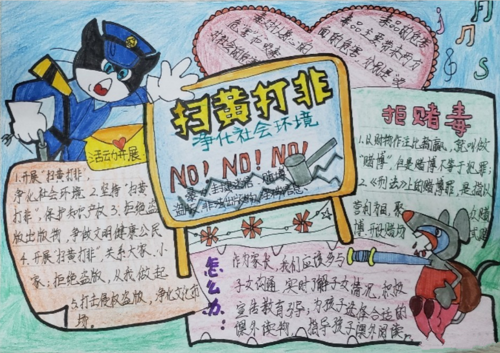 扫黄打非
净化社会环境
NO! NO! NO!
活动开展:
1.开展“扫黄打非”
净化社会环境.2.坚持“扫黄
打非”,保护知识产权.3.拒绝盗
版出版物,争做文明健康公民
4.开展“扫黄打非”,关系大家、小
家;拒绝盗版,从我做起
5.打击侵权盗版,净化文化市
场。
拒赌毒
1.以财物作注比输赢,就叫做
“赌博”,但是赌博不等于犯罪,
2.《刑法》上的赌博罪,是指以
营利为目的,聚
怎么办:
作为家长,我们应该多与
子女沟通,实时了解子女情况,积极
宣传教育引导,为孩子选择合适的
课外读物,指导孩子课外阅读。